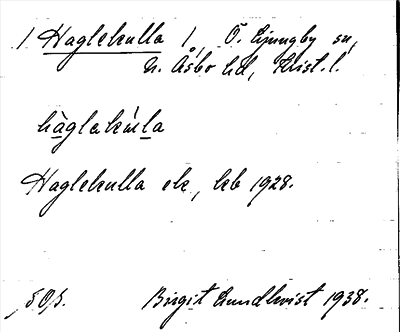 1 Haglekulla 1, Ö. Ljungby sn,
N. Åsbo hd, Krist. l.
hàglakúla
Haglekulla ek, kb 1928.
Birgit Lundkvist 1938.